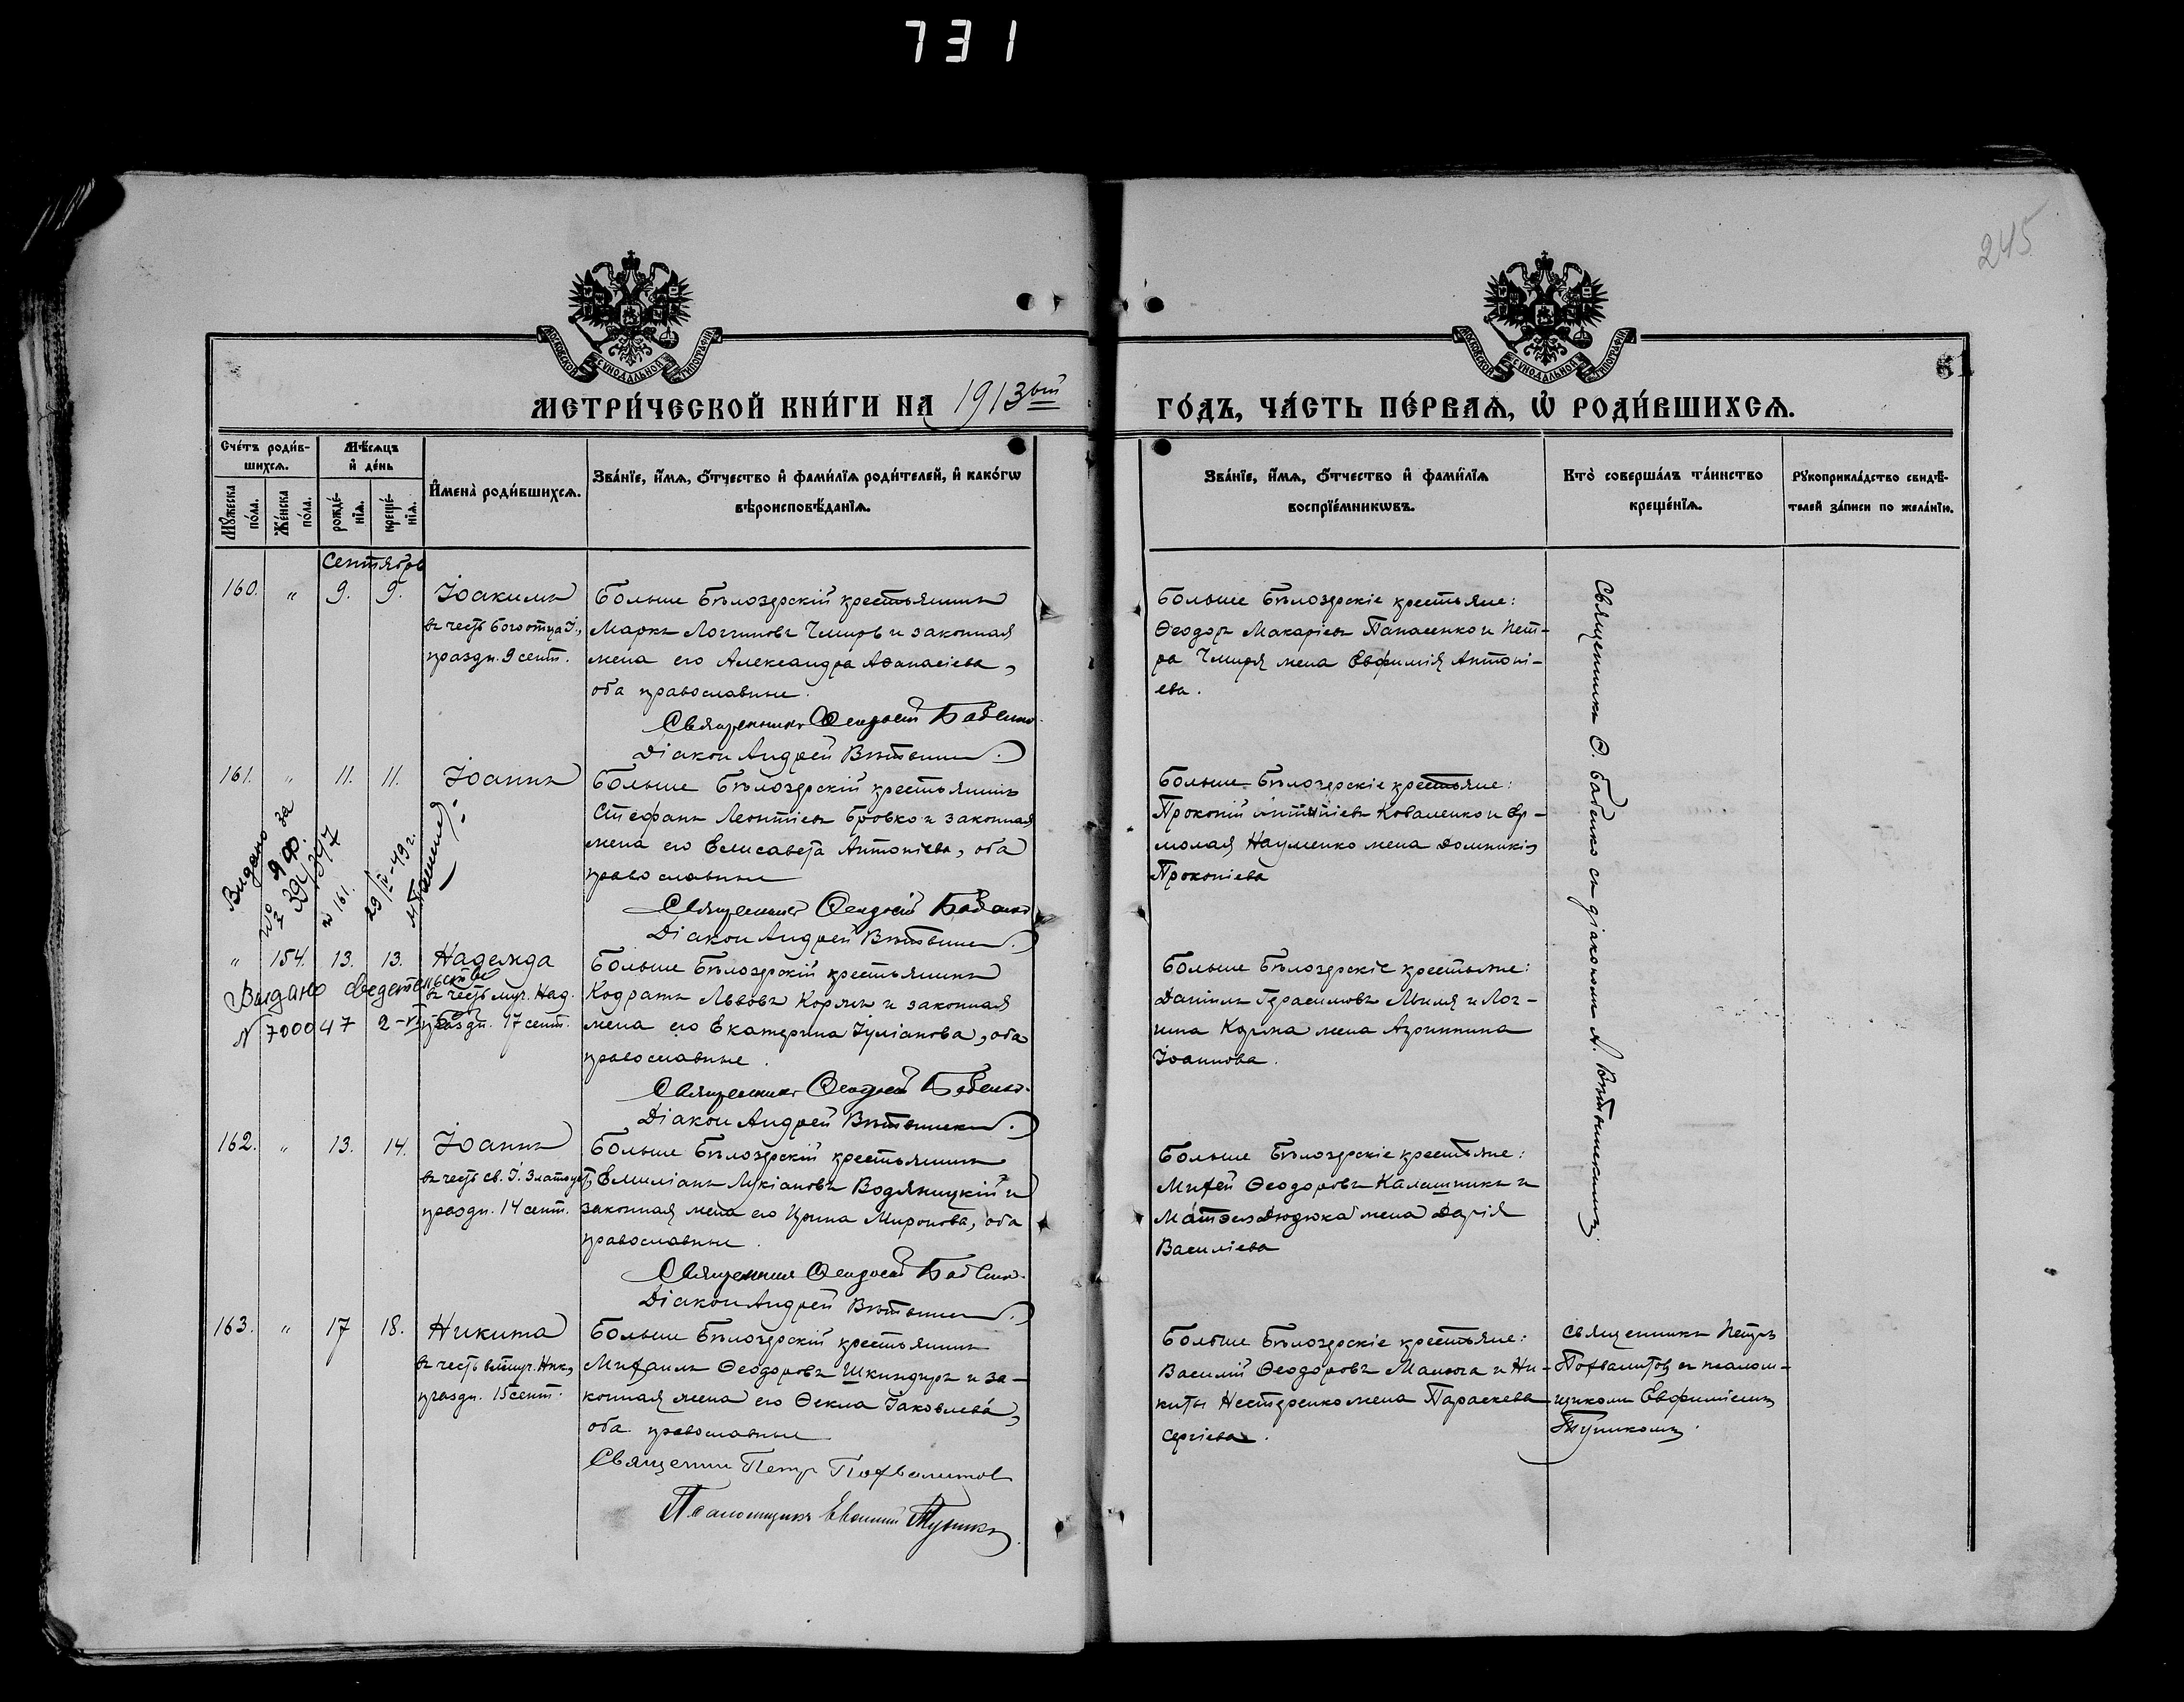 731
245
МОСКОВСКОЙ СУНОДАЛЬНОЙ ТИПОГРАФІИ
МОСКОВСКОЙ СУНОДАЛЬНОЙ ТИПОГРАФІИ
МЕТРИ́ЧЕСКОЙ КНИ́ГИ НА 1913ый
ГО́ДЪ, ЧА́СТЬ ПЕ́РВАѦ, Ѡ҆ РОДИ́ВШИХСѦ.
Сче́тъ роди́в-
шихсѧ.
Мꙋ́жеска по́ла.
Же́нска по́ла.
Мѣ́сѧцъ
и҆ де́нь
рожде́-
нїѧ.
креще́-
нїѧ.
И҆мена̀ роди́вшихсѧ.
Зва́нїе, и҆́мѧ, ѻ҆́тчество и҆ фами́лїѧ роди́телей, и҆ како́гѡ
вѣроисповѣ́данїѧ.
Зва́нїе, и҆́мѧ, ѻ҆́тчество и҆ фами́лїѧ
воспрїе́мникѡвъ.
Кто̀ соверша́лъ та́инство
креще́нїѧ.
Рꙋкоприкла́дство свидѣ́-
телей за́писи по жела́нїю.
Сентябрь
160. " 9. 9. Іоакимъ
въ честь Богоотца І.,
праздн. 9 сент.
Больше Бѣлозерскій крестьянинъ
Маркъ Логгиновъ Чмирь и законная
жена его Александра Аѳанасіева,
оба православные.
Священникъ Ѳеодосій Бабенко.
Діакон Андрей
Больше Бѣлозерскіе крестьяне:
Ѳеодоръ Макаріевъ Панасенко и Пет-
ра Чмиря жена Евфимія Антоні-
ева.
Священникъ Ѳ. Бабенко съ діакономъ А.
161. " 11. 11. Іоаннъ
Видано за
№ 161.
29/IV-49 г.
Больше Бѣлозерскій крестьянинъ
Стефанъ Леонтіевъ Бровко и законная
жена его Елисавета Антоніева, оба
православные
Священникъ Ѳеодосій Бабенко
Діакон Андрей
Больше-Бѣлозерскіе крестьяне:
Прокопій Коваленко и Ер-
молая Науменко жена Домникія
Прокопіева
" 154. 13. 13. Надежда
въ честь муч. Над.
праздн. 17 сент.
Видано
N 700047
Больше Бѣлозерскій крестьянинъ
Кодратъ Львовъ Коржъ и законная
жена его Екатерина Іуліанова, оба
православные.
Священникъ Ѳеодосій Бабенко.
Діакон Андрей
Больше Бѣлозерскіе крестьяне:
Даніилъ Герасимовъ и Лог-
гина Коржа жена Агриппина
Іоаннова.
162. " 13. 14. Іоаннъ
въ честь св. І. Златоуст,
праздн. 14 сент.
Больше Бѣлозерскій крестьянинъ
Емиліанъ Лукіановъ Водяницкій и
законная жена его Ирина Миронова, оба
православные.
Священникъ Ѳеодосій Бабенко.
Діакон Андрей
Больше Бѣлозерскіе крестьяне:
Михей Ѳеодоровъ Калашникъ и
Матѳея Дюдюка жена Дарія
Василіева
163. " 17 18. Никита
въ честь Вмуч. Ник.,
праздн. 15 сент.
Больше Бѣлозерскій крестьянинъ
Михаилъ Ѳеодоровъ Шкиндиръ и за-
конная жена его Ѳекла Іаковлева,
оба православные
Священник Петр Похвалитов
Псаломщикъ Евѳимій Тупикъ
Больше Бѣлозерскіе крестьяне:
Василій Ѳеодоровъ Манюга и Ни-
киты Нестеренко жена Параскева
Сергіева.
Священникъ Петръ
Похвалитов съ псалом-
щикомъ Евфиміемъ
Тупикомъ.